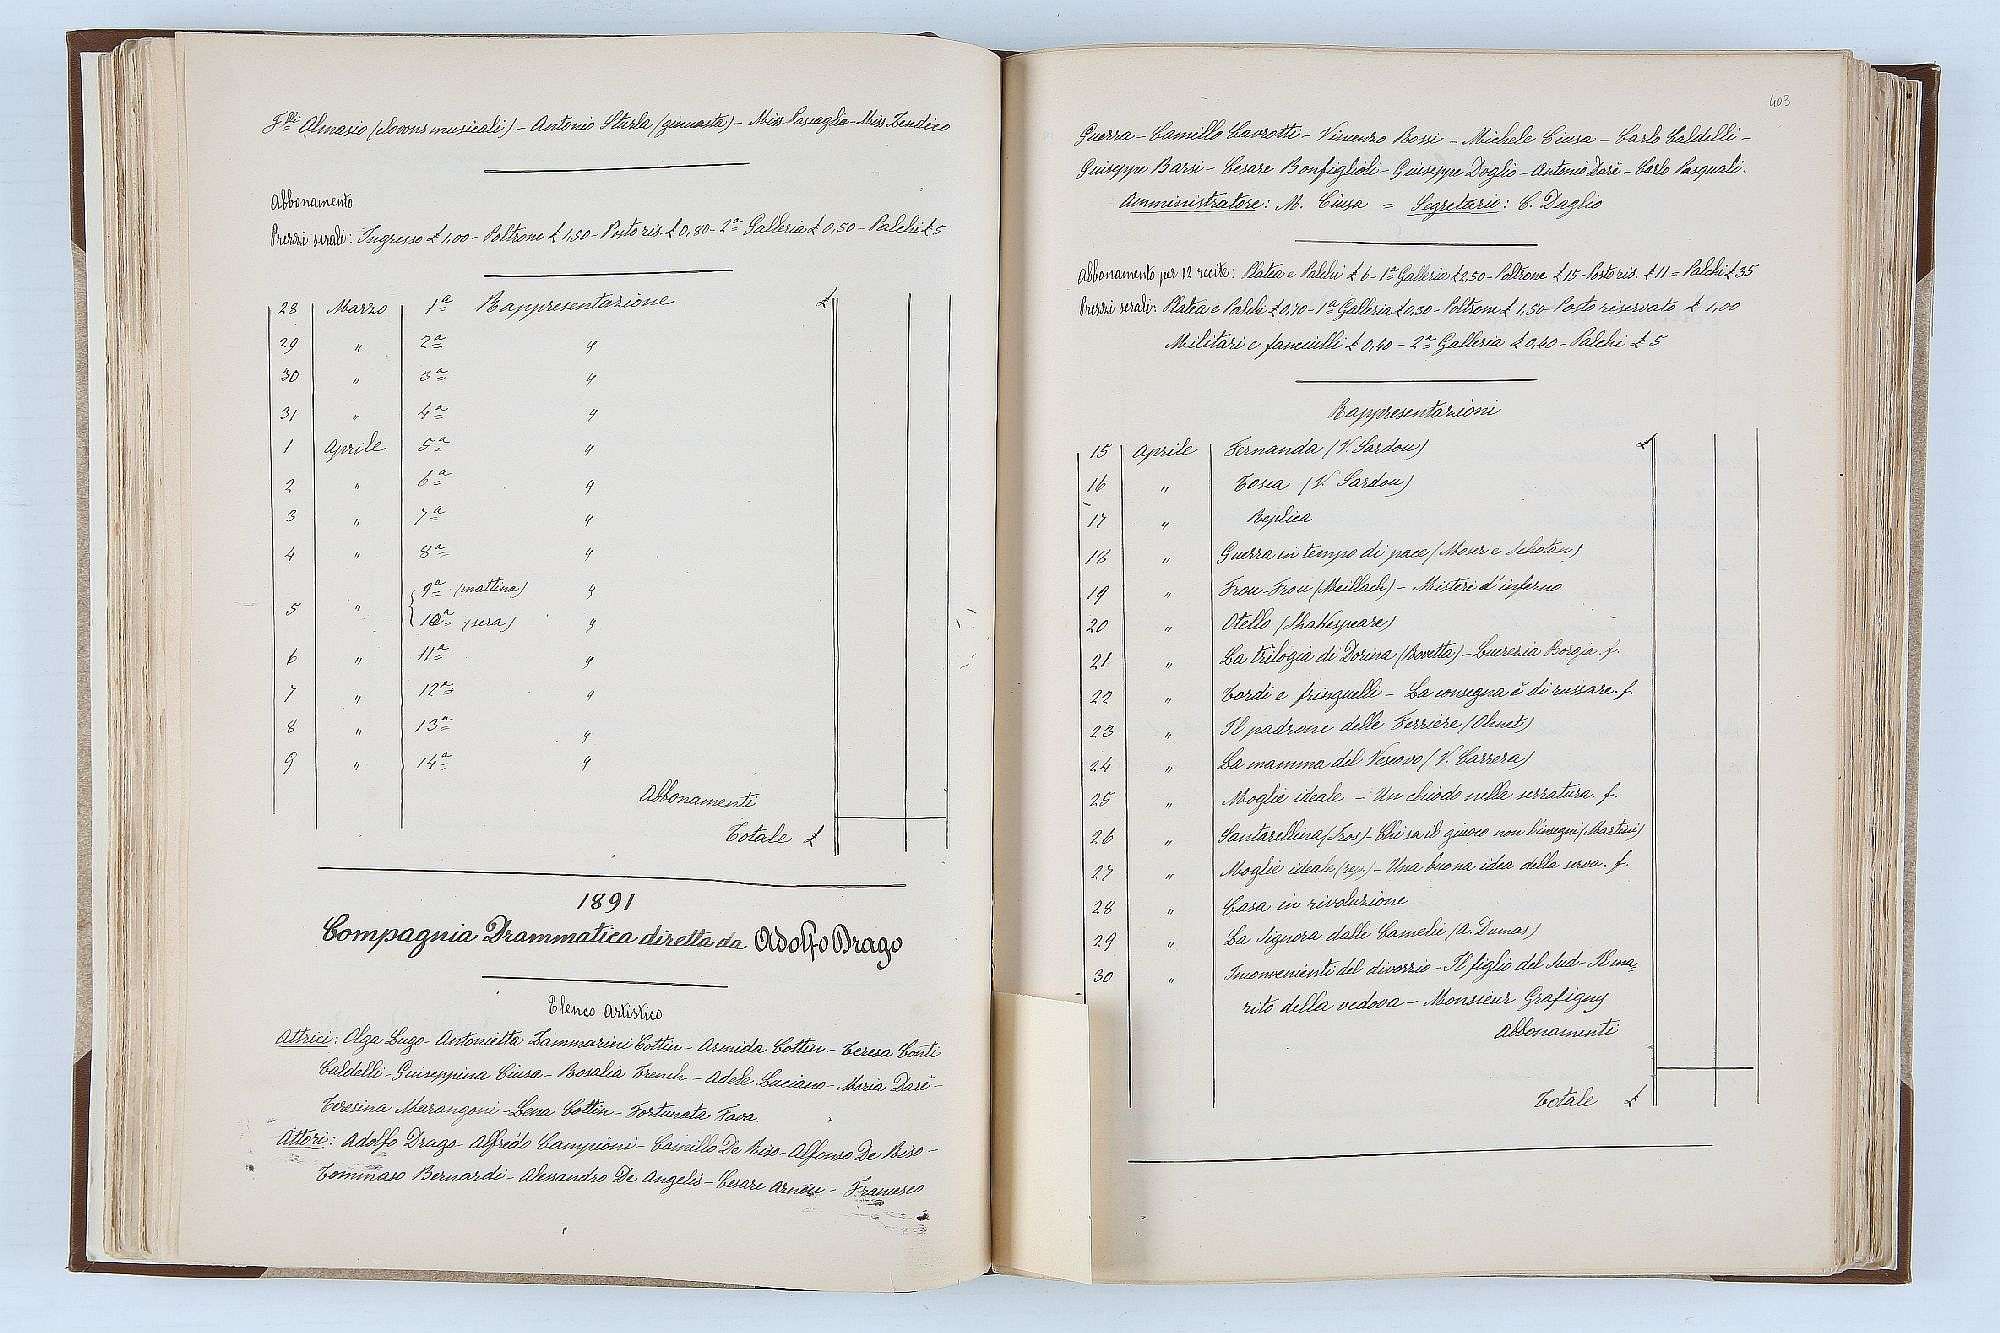 F.lli Almasio (clowns musicali) - Antonio Sturla (ginnasta) - Miss Pascaglia - Miss Zendico
Abbonamento
Prezzi serali: Ingresso £ 1,00 - Poltrone £ 1,50 - Posto ris. £ 0,80 - 2ª Galleria £ 0,50 - Palchi £ 5
28 Marzo 1ª Rappresentazione £
29 " 2ª "
30 " 3ª "
31 " 4ª "
1 Aprile 5ª "
2 " 6ª "
3 " 7ª "
4 " 8ª "
5 " 9ª (mattina) "
10ª (sera) "
6 " 11ª "
7 " 12ª "
8 " 13ª "
9 " 14ª "
Abbonamenti
Totale £
1891
Compagnia Drammatica diretta da Adolfo Drago
Elenco Artistico
Attrici: Olga Lugo - Antonietta Zammarini Cottin - Armida Cottin - Teresa Conti
Caldelli - Giuseppina Ciusa - Rosalia French - Adele Luciano - Maria Dasè -
Teresina Marangoni - Lena Cottin - Fortunata Fava.
Attori: Adolfo Drago - Alfredo Campioni - Camillo De Riso - Alfonso De Riso -
Tommaso Bernardi - Alessandro De Angelis - Cesare Arnou - Francesco
403
Guerra - Camillo Cavrotti - Vincenzo Rossi - Michele Ciusa - Carlo Caldelli -
Giuseppe Barsi - Cesare Bonfiglioli - Giuseppe Doglio - Antonio Dasè - Carlo Pasquali.
Amministratore: M. Ciusa = Segretario: C. Doglio
Abbonamento per 12 recite: Platea e Palchi £ 6 - 1ª Galleria £ 2,50 - Poltrone £ 15 - Posto ris. £ 11 = Palchi £ 35
Prezzi serali: Platea e Palchi £ 0,70 - 1ª Galleria £ 0,50 - Poltrone £ 1,50 - Posto riservato £ 1,00
Militari e fanciulli £ 0,40 - 2ª Galleria £ 0,40 - Palchi £ 5
Rappresentazioni
15 Aprile Fernanda (V. Sardou) £
16 " Tosca (V. Sardou)
17 " Replica
18 " Guerra in tempo di pace (Moser e Schotau)
19 " Frou-Frou (Meillach) - Misteri d'inferno
20 " Otello (Shakespeare)
21 " La trilogia di Dorina (Rovetta) - Lucrezia Borgia. f.
22 " Tordi e fringuelli - La consegna è di russare. f.
23 " Il padrone delle Ferriere (Ohnet)
24 " La mamma del Vescovo (V. Carrera)
25 " Moglie ideale - Un chiodo nella serratura. f.
26 " Santarellina (Fos) - Chi sa il giuoco non l'insegni (Martini)
27 " Moglie ideale (rep.) - Una buona idea della serva. f.
28 " Casa in rivoluzione
29 " La Signora dalle Camelie (A. Dumas)
30 " Inconvenienti del divorzio - Il figlio del Sud - Il ma-
rito della vedova - Monsieur Grafigny
Abbonamenti
Totale £